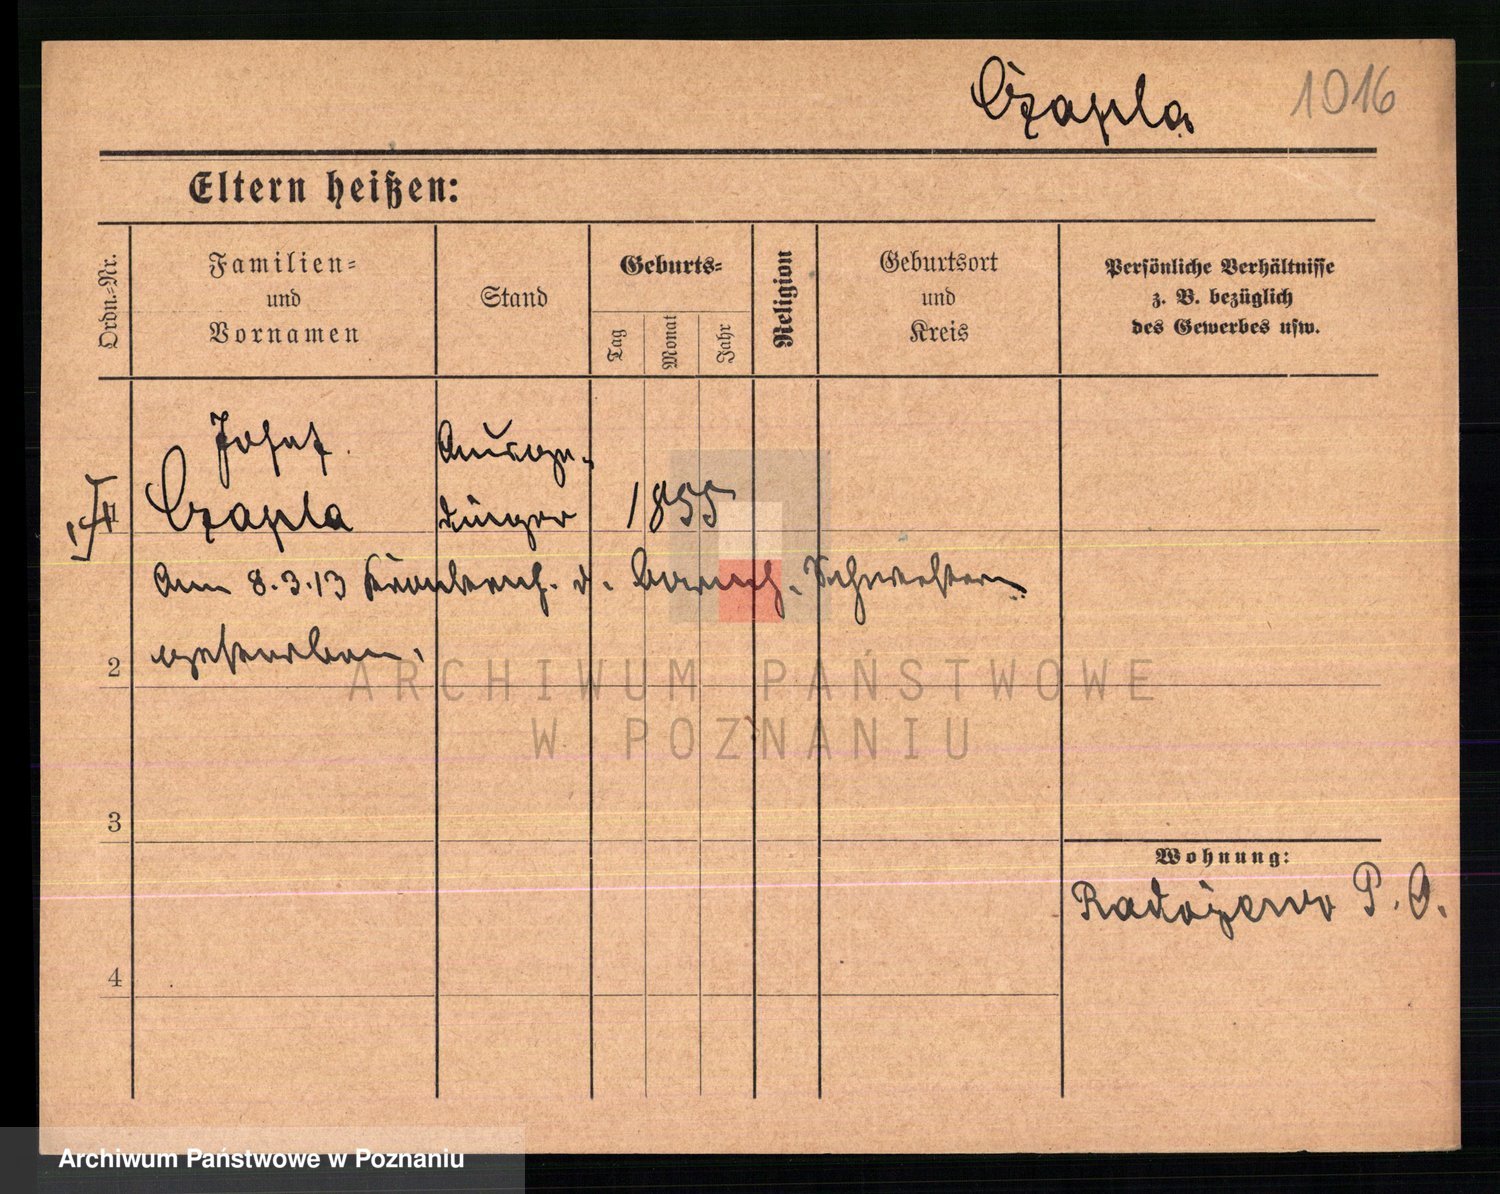 Czapla 1016
Eltern heißen:
Ordn.-Nr.
Familien-
und
Vornamen
Stand
Geburts-
Tag
Monat
Jahr
Religion
Geburtsort
und
Kreis
Persönliche Verhältnisse
z. B. bezüglich
des Gewerbes usw.
Josef
Czapla
Ausge-
dinger
1855
Am 8.3.13 Krankenh. d. Barmh. Schwestern
2 gestorben.
3
4
Wohnung:
Radojewo P. O.
ARCHIWUM PAŃSTWOWE
W POZNANIU
Archiwum Państwowe w Poznaniu